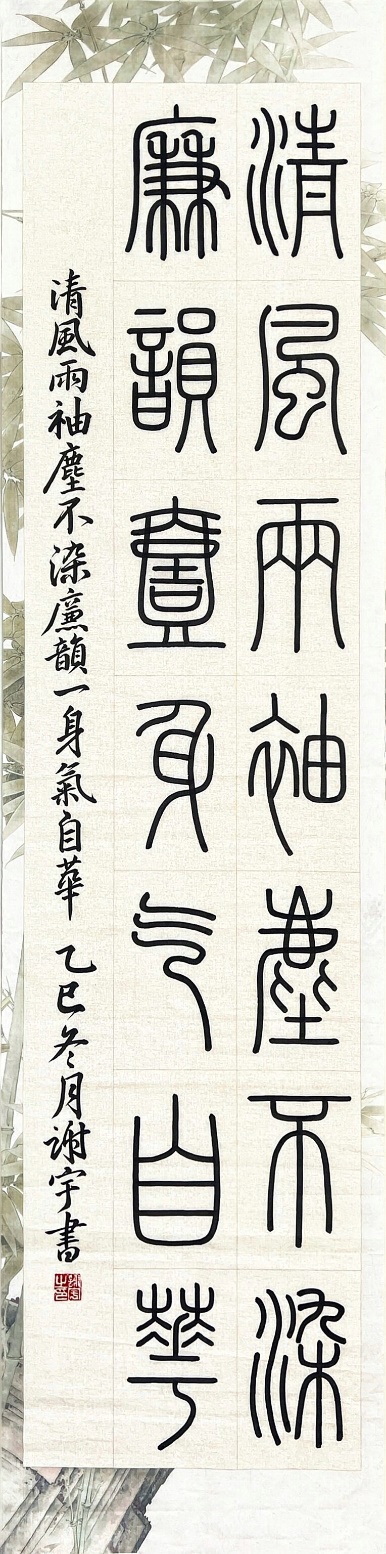 清風兩袖塵不染
廉韻壹身气自華
清風兩袖塵不染廉韻一身氣自華 乙巳冬月謝宇書